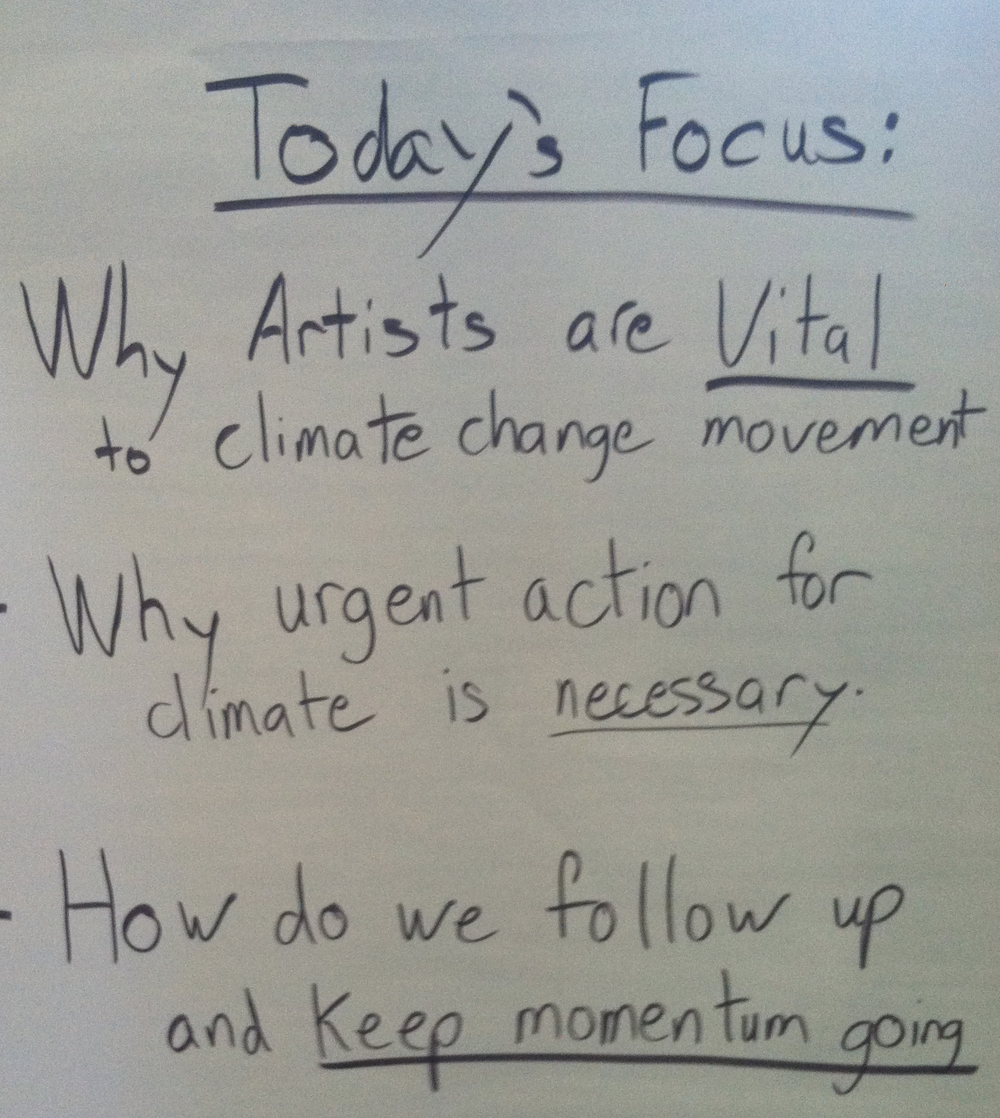 Today's Focus:
Why Artists are Vital
to climate change movement
- Why urgent action for
climate is necessary.
- How do we follow up
and Keep momentum going